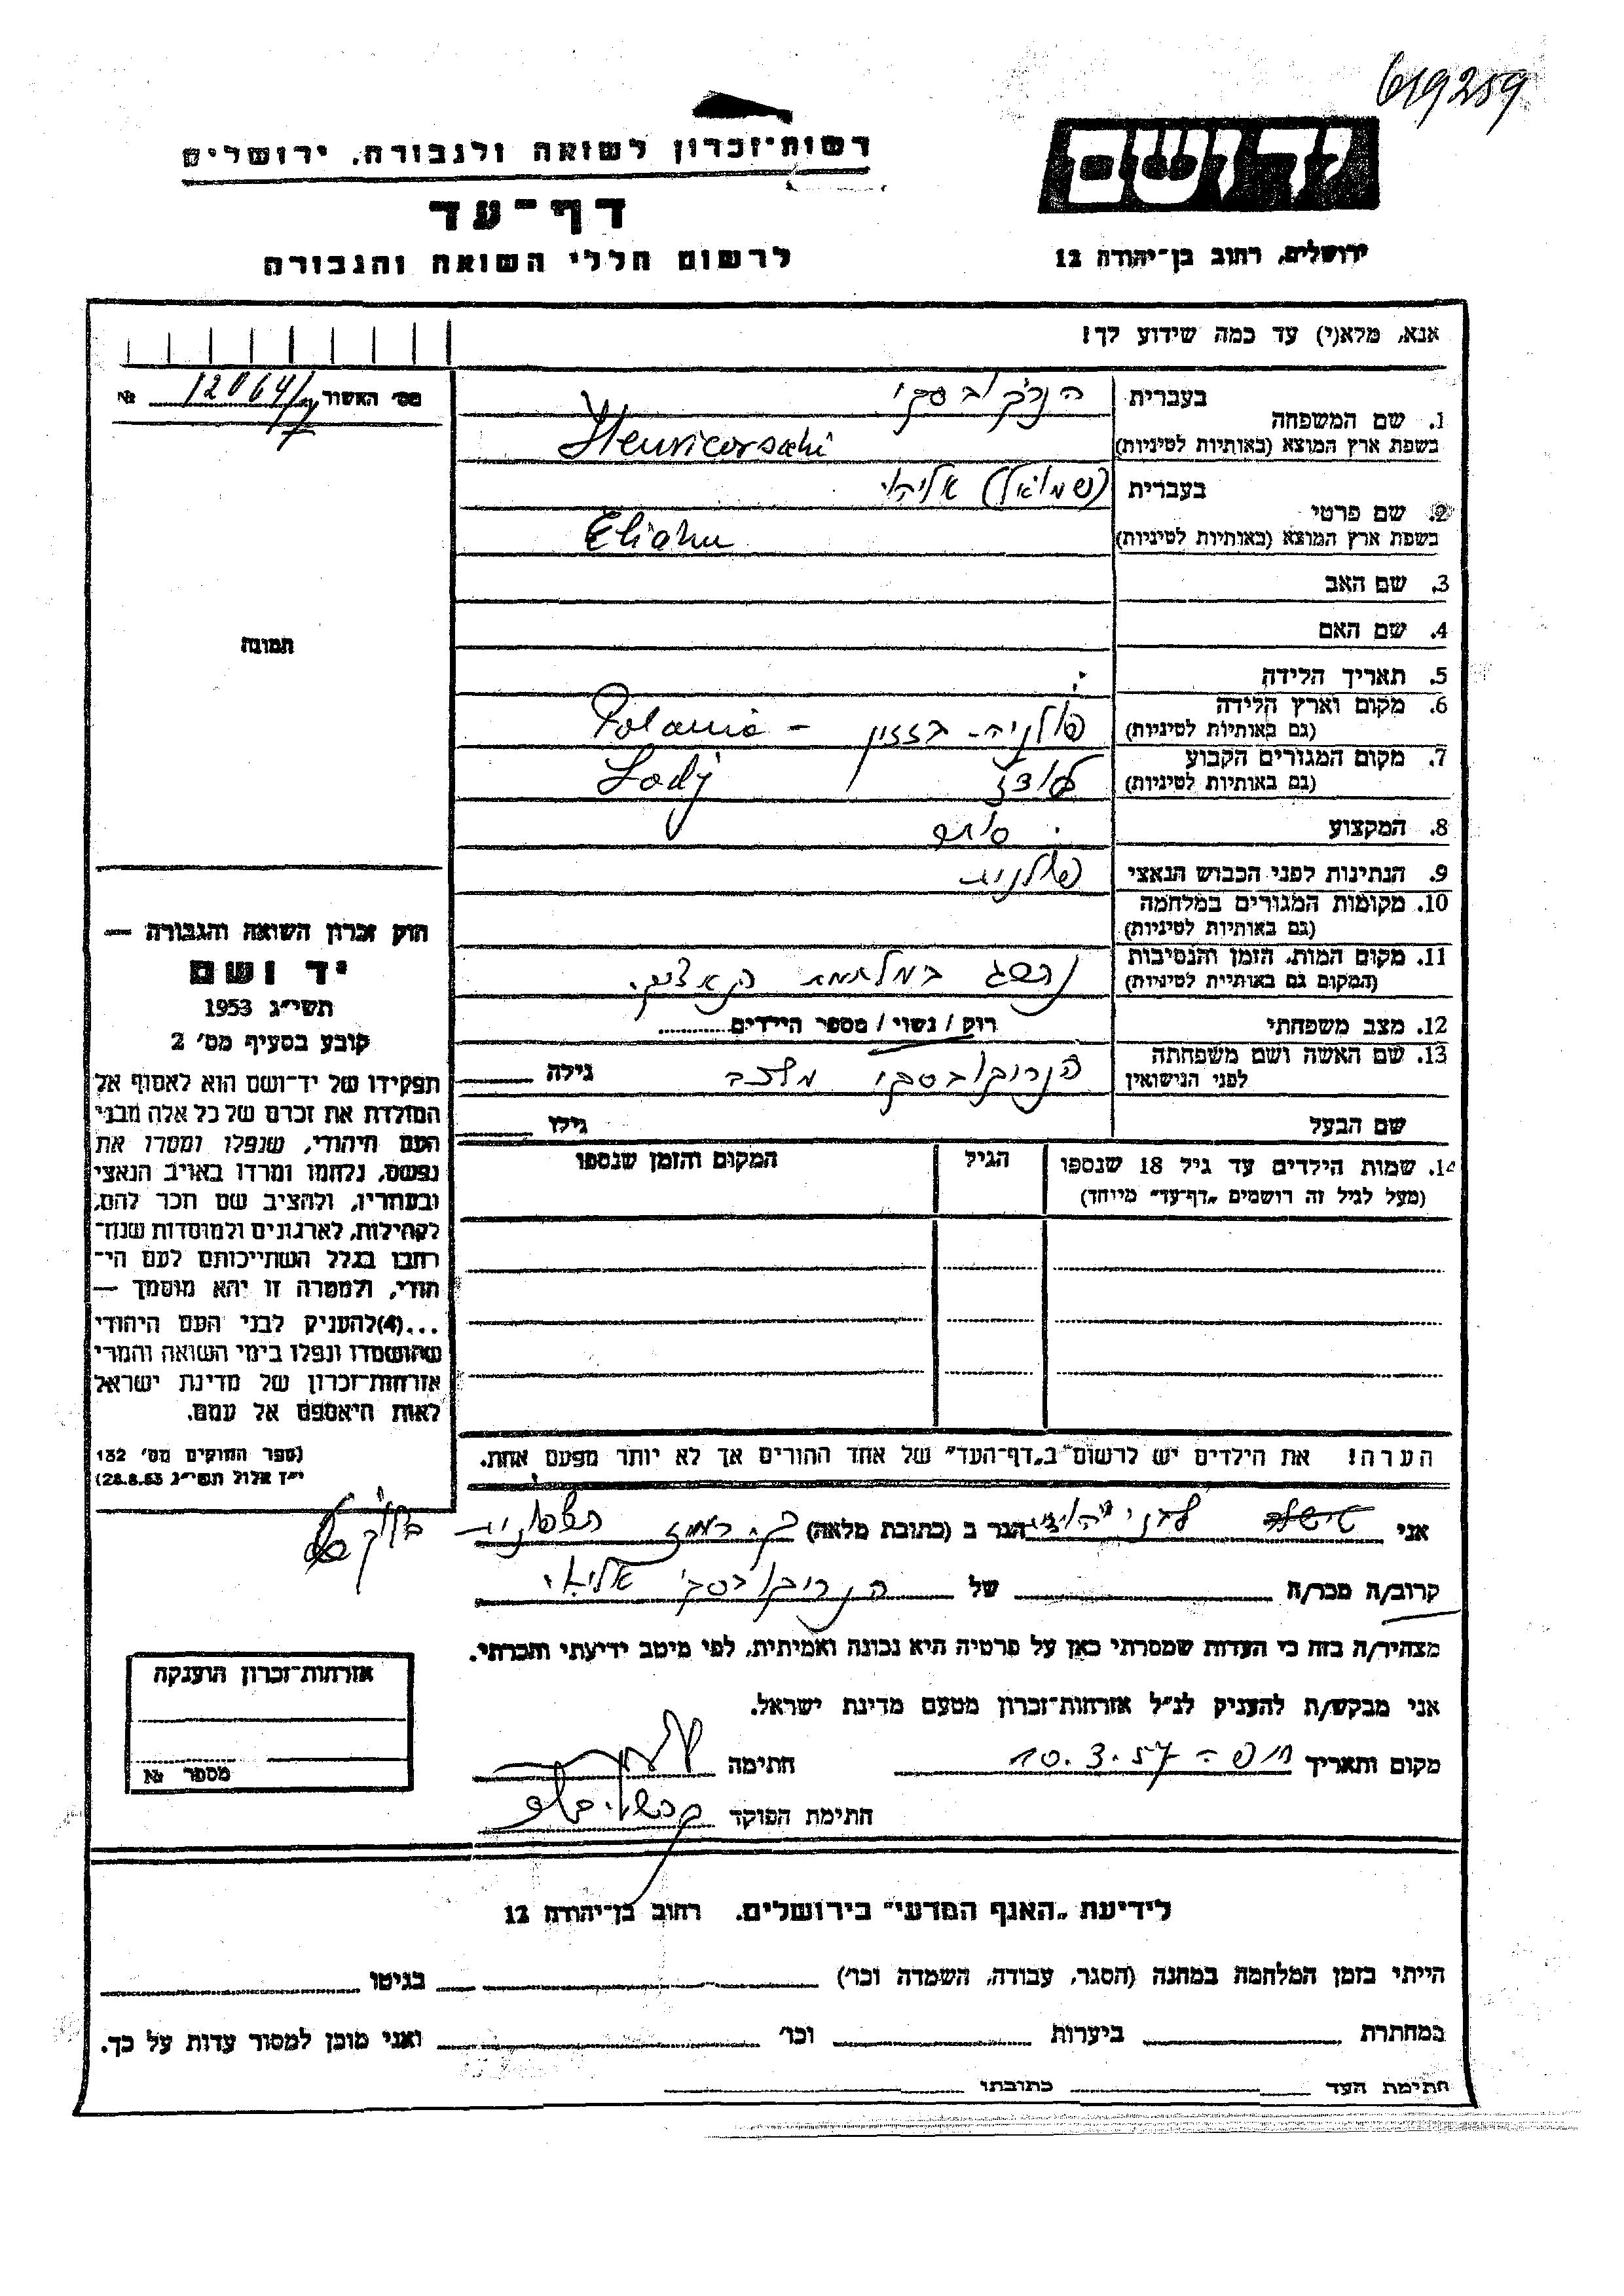 619259
רשות־זכרון לשואה ולגבורה, ירושלים
יד ושם
דף־עד
לרשום חללי השואה והגבורה
ירושלים, רחוב בן־יהודה 12
אנא, מלא(י) עד כמה שידוע לך!
מס׳ האשור 12064/ №
1. שם המשפחה
בעברית הנריקובסקי
בשפת ארץ המוצא (באותיות לטיניות)
2. שם פרטי
בעברית (שמואל) אליהו
בשפת ארץ המוצא (באותיות לטיניות) Eliahu
3. שם האב
4. שם האם
5. תאריך הלידה
6. מקום וארץ הלידה
(גם באותיות לטיניות) פולניה - Polania
7. מקום המגורים הקבוע
(גם באותיות לטיניות) לודז Lodj
8. המקצוע סוחר
9. הנתינות לפני הכבוש הנאצי פולנית
10. מקומות המגורים במלחמה
(גם באותיות לטיניות)
11. מקום המות, הזמן והנסיבות
(המקום גם באותיות לטיניות) נהרג במלחמת הנאצים.
12. מצב משפחתי רוק / נשוי / מספר הילדים
13. שם האשה ושם משפחתה
לפני הנישואין הנריקובסקי גילה
שם הבעל גילו
14. שמות הילדים עד גיל 18 שנספו
(מעל לגיל זה רושמים „דף־עד״ מיוחד)
הגיל
המקום והזמן שנספו
הערה! את הילדים יש לרשום ב„דף־העד״ של אחד ההורים אך לא יותר מפעם אחת.
תמונה
חוק זכרון השואה והגבורה —
יד ושם
תשי״ג 1953
קובע בסעיף מס׳ 2
תפקידו של יד־ושם הוא לאסוף אל
המולדת את זכרם של כל אלה מבני
העם היהודי, שנפלו ומסרו את
נפשם, נלחמו ומרדו באויב הנאצי
ובעוזריו, ולהציב שם וזכר להם,
לקהילות, לארגונים ולמוסדות שנח־
רבו בגלל השתייכותם לעם הי־
הודי, ולמטרה זו יהא מוסמך —
...(4)להעניק לבני העם היהודי
שהושמדו ונפלו בימי השואה והמרי
אזרחות־זכרון של מדינת ישראל
לאות היאספם אל עמם.
(ספר החוקים מס׳ 132
י״ז אלול תשי״ג 28.8.53)
אני הגר ב (כתובת מלאה)
קרוב/ה מכר/ה של הנריקובסקי אליהו
מצהיר/ה בזה כי העדות שמסרתי כאן על פרטיה היא נכונה ואמיתית, לפי מיטב ידיעתי והכרתי.
אני מבקש/ת להעניק לנ״ל אזרחות־זכרון מטעם מדינת ישראל.
מקום ותאריך חיפה 10.3.57 חתימה
חתימת הפוקד
אזרחות־זכרון הוענקה
מספר №
לידיעת „האגף המדעי״ בירושלים. רחוב בן־יהודה 12
הייתי בזמן המלחמה במחנה (הסגר, עבודה, השמדה וכו׳) בגיטו
במחתרת ביערות וכו׳ ואני מוכן למסור עדות על כך.
חתימת העד כתובתו